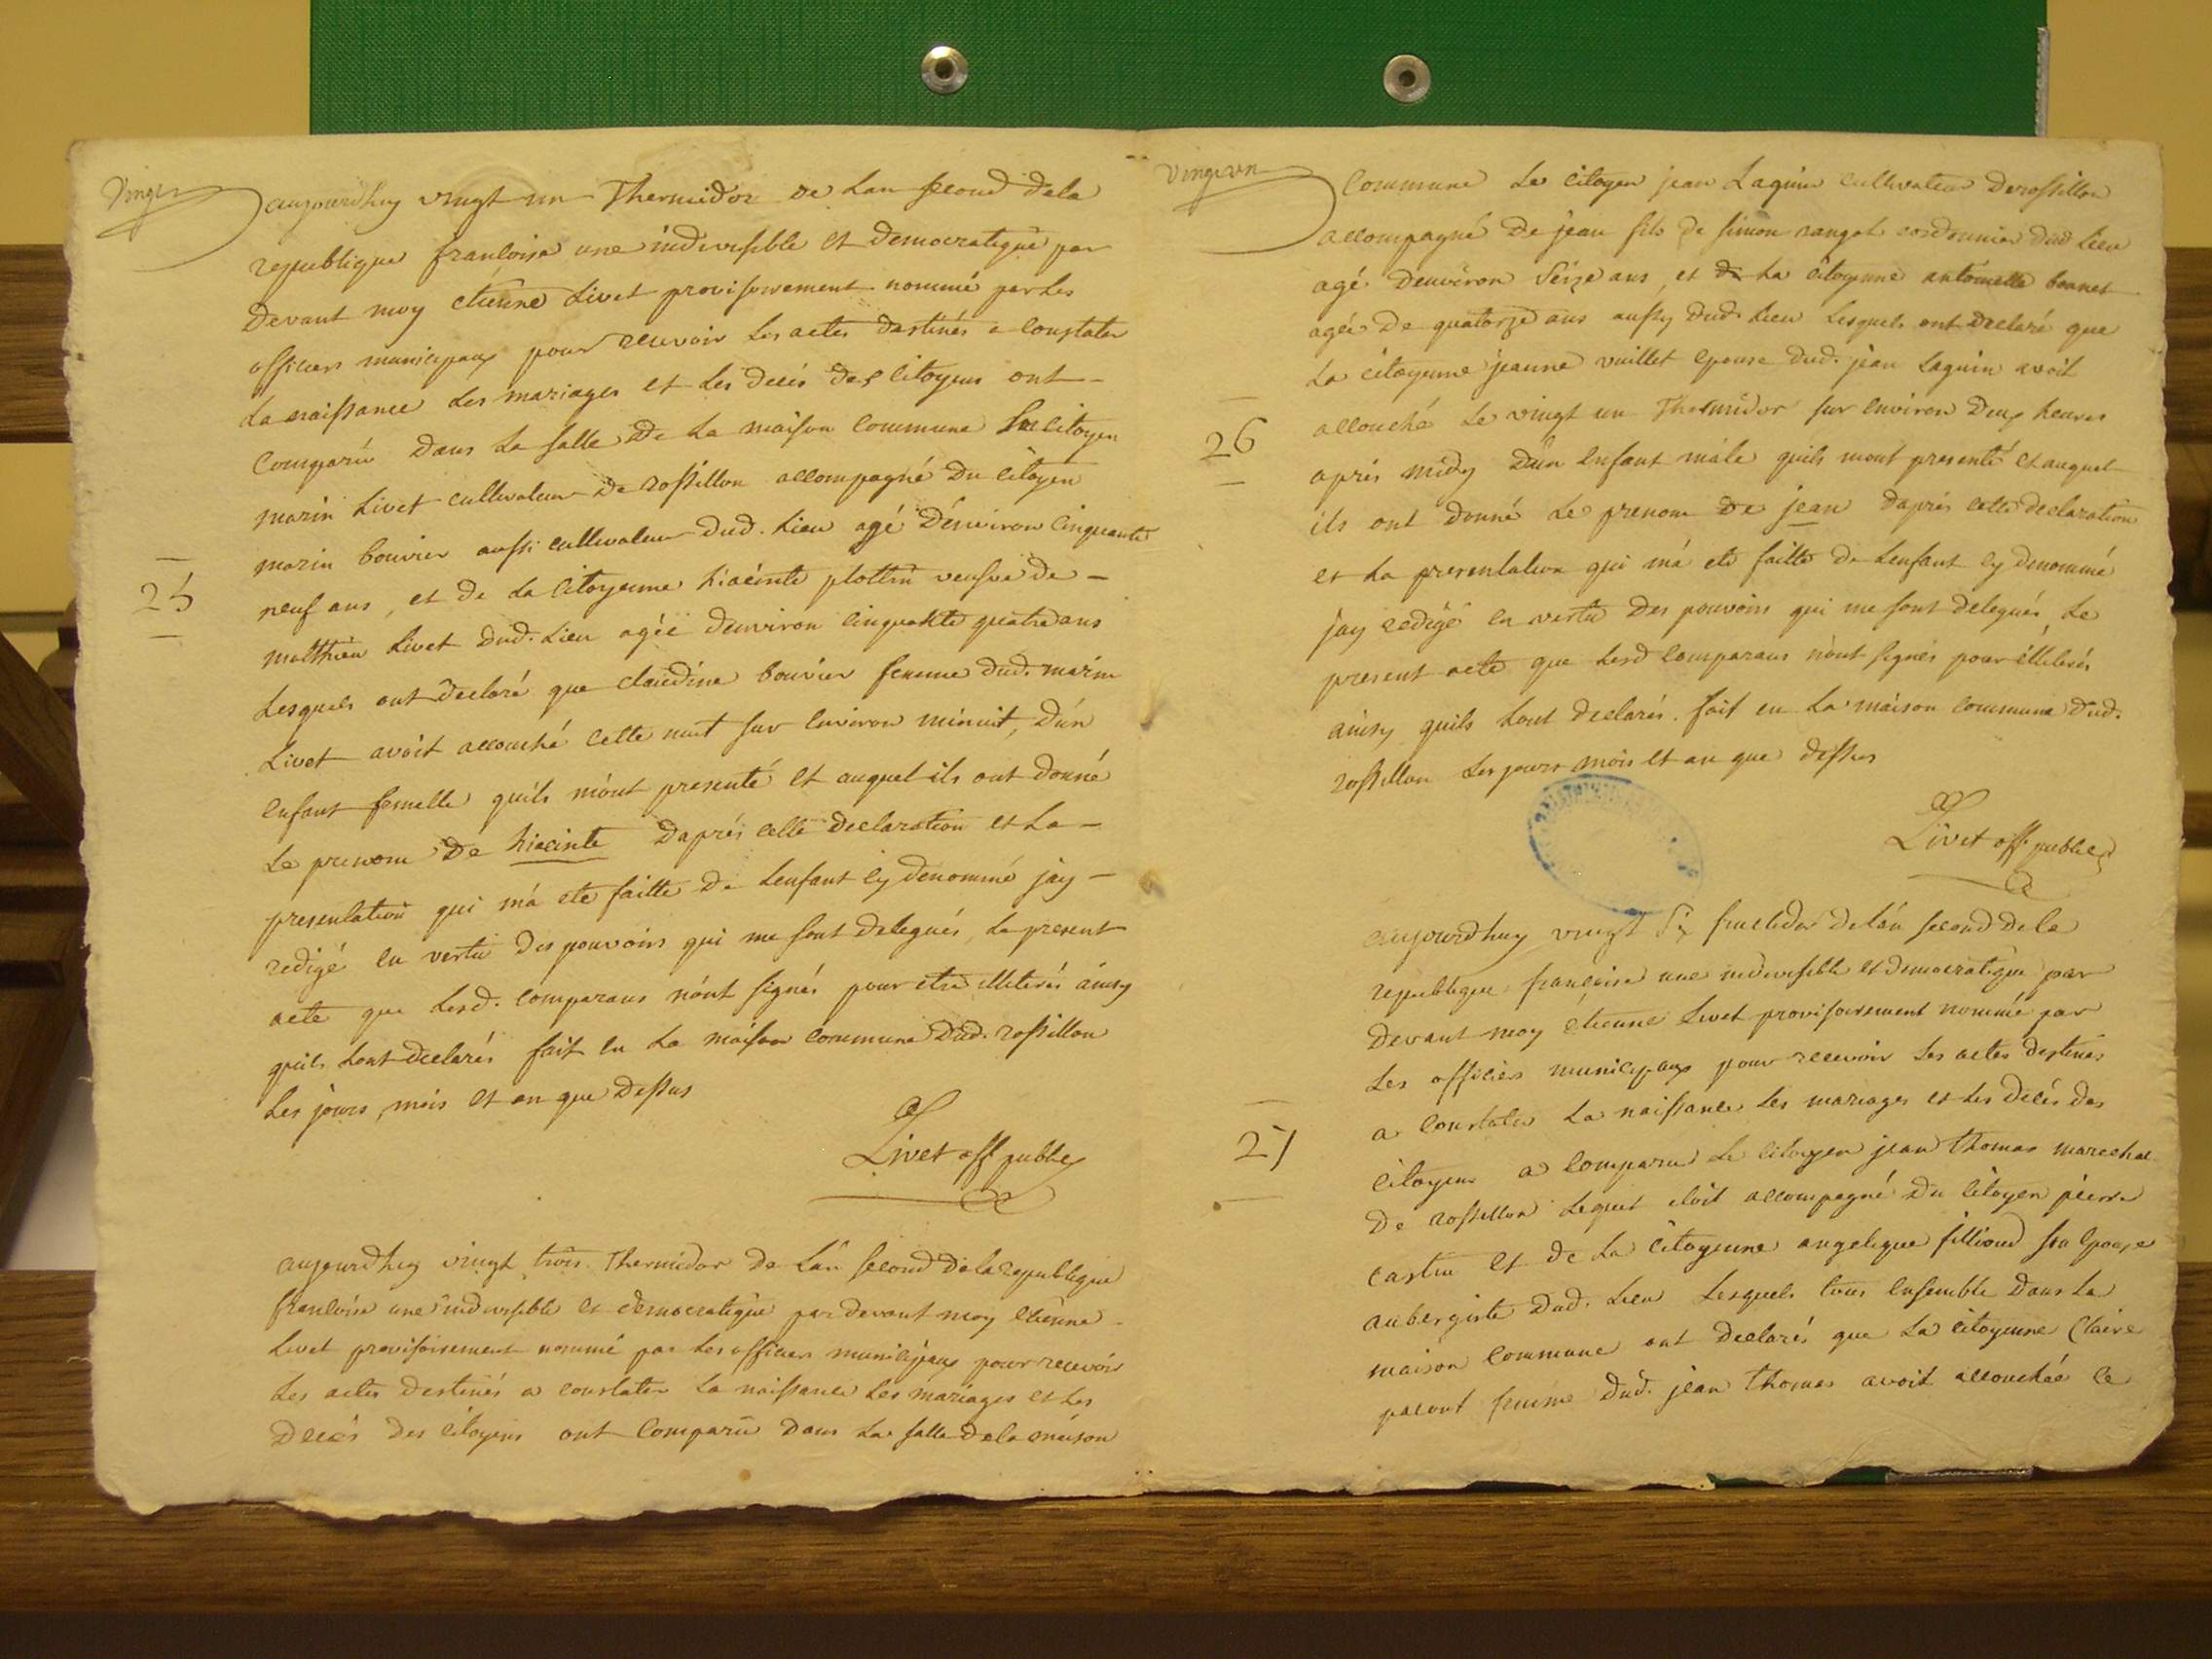 Vingt
aujourdhuy vingt un Thermidor de Lan second dela
republique françoise une indivisible et democratique par
devant moy etienne Livet provisoirement nommé par Les
officiers municipaux pour recevoir Les actes destinés a Constater
La naissance Les mariages et Les decès des Citoyens ont
Comparu dans La salle de La maison Commune Le Citoyen
marin Livet cultivateur de rossillon accompagné du Citoyen
marin bouvier aussi cultivateur dud. Lieu agé dénviron Cinquante
25
neuf ans, et de La Citoyenne hiacinte plottin veufve de
matthieu Livet dud. Lieu agée denviron cinquante quatre ans
Lesquels ont declaré que claudine bouvier femme dud. marin
Livet avoit accouché Cette nuit sur Environ minuit, dún
Enfant femelle quils mónt presenté et auquel ils ont donné
Le prenom de hiacinte daprés Cette declaration et La
presentation qui má eté faitte de Lenfant Cy denommé jay
redigé En vertu des pouvoirs qui me sont delegués, Le present
acte que Lesd. Comparans nónt signés pour etre illiterés ainsy
quils Lont declarés fait En La maison Commune dud. rossillon
Les jours, mois Et an que dessus
Livet off public
aujourdhuy vingt trois Thermidor de Lán second dela republique
françoise une indivisible et democratique par devant moy Etienne
Livet provisoirement nommé par Les officiers municipaux pour recevoir
Les actes destinés a constater La naissance Les mariages et Les
decés des Citoyens ont Comparu dans La salle dela maison
Vingt un
Commune Le Citoyen jean Laguin cultivateur de rossillon
accompagné de jean fils de simon cordonnier dud Lieu
agé denviron Seize ans, et La Citoyenne antoinette bonnet
agée de quatorze ans aussy dud. Lieu Lesquels ont declaré que
La citoyenne jeanne vuillet Epouse dud. jean Laguin avoit
accouché Le vingt un Thermidor sur Environ deux heures
26
aprés midy dún Enfant mále quils mont presenté et auquel
ils ont donné Le prenom de jean daprés Cette declaration
et La presentation qui má eté faitte de Lenfant Cy denommé
jay redigé En vertu des pouvoirs qui me sont delegués, Le
present acte que Lesd Comparans nónt signés pour illiterés
ainsy quils Lont declarés. fait en La maison Commune dud.
rossillon Les jours mois Et an que dessus
Livet off public
aujourdhuy vingt Six fructidor de Lán second dela
republique françoise une indivisible et democratique par
devant moy etienne Livet provisoirement nommé par
Les officiers municipaux pour recevoir Les actes destinés
a Constater La naissance Les mariages et Les decés des
27
Citoyens a Comparu Le Citoyen jean thomas marechal
de rossillon Lequel etoit accompagné du Citoyen pierre
castin et de La Citoyenne angelique filliond sa Epouse
aubergiste dud. Lieu Lesquels tous Ensemble dans La
maison Commune ont declarés que La Citoyenne Claire
pacout femme dud. jean thomas avoit accouchée Ce